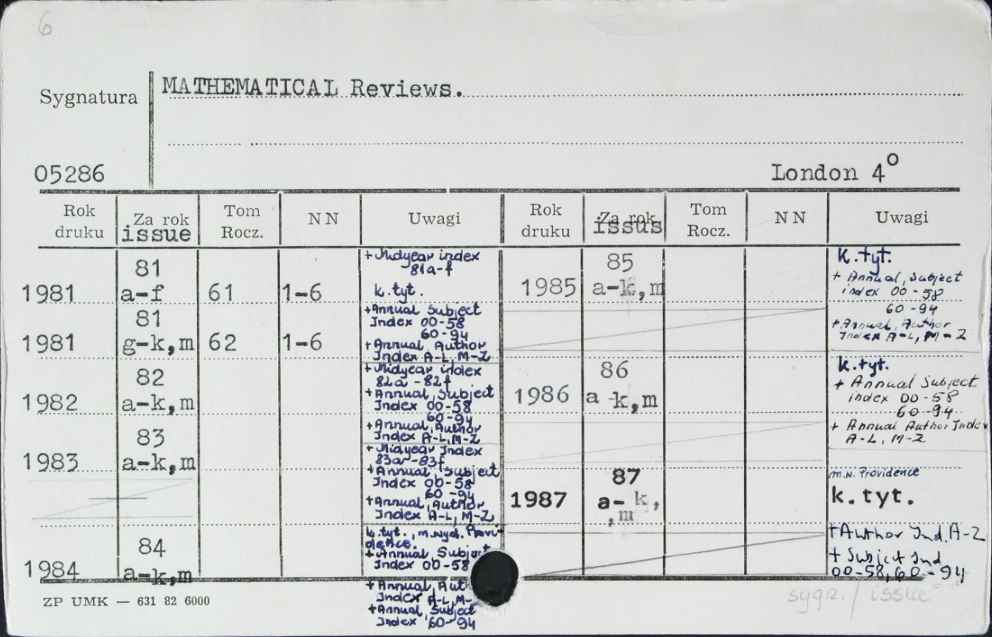 6
Sygnatura
MATHEMATICAL Reviews.
05286
London 4°
Rok druku
Za rok issue
Tom Rocz.
NN
Uwagi
Rok druku
Za rok issus
Tom Rocz.
NN
Uwagi
1981
81 a-f
61
1-6
+ Midyear index
81a-f
k.tyt.
1981
81 g-k,m
62
1-6
+Annual Subject
Index 00-58
60-94
+Annual, Author
Index A-L, M-Z
1982
82 a-k,m
+Midyear index
82a - 82f
+Annual, Subject
Index 00-58
60-94
+Annual, Author
Index A-L, M-Z
1983
83 a-k,m
+ Midyear Index
83a-83f
+Annual, Subject
Index 00-58
60-94
+Annual, Author
Index A-L, M-Z
1984
84 a-k,m
k.tyt., m.wyd. Provi-
dence.
+Annual, Subject
Index 00-58
+Annual, Aut
Index A-L, M-
+Annual, Subject
Index 60-94
1985
85 a-k,m
k.tyt.
+ Annual, Subject
index 00-58
60-94
+Annual, Author
Index A-L, M-Z
1986
86 a-k,m
k.tyt.
+ Annual Subject
index 00-58
60-94
+ Annual Author Index
A-L, M-Z
1987
87 a-k,
,m
m.w. Providence
k.tyt.
+Author Ind. A-Z
+ Subject Ind
00-58, 60-94
ZP UMK — 631 82 6000
sygn. / issue